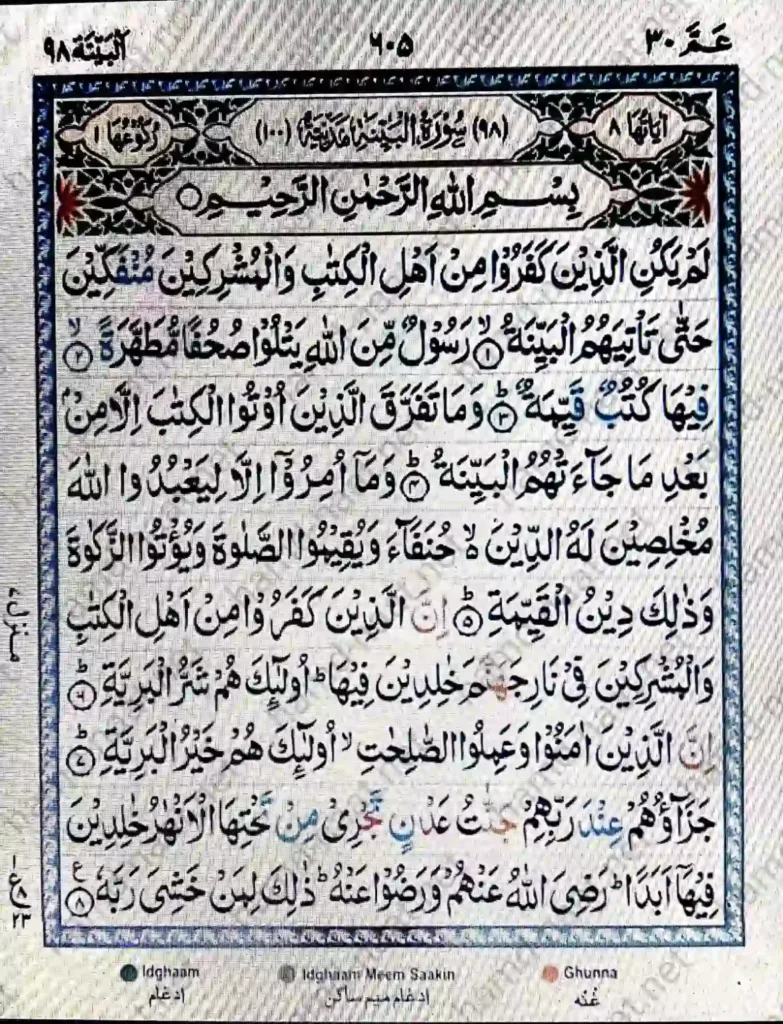 عَمَّ ٣٠
٦٠٥
اَلْبَيِّنَة ٩٨
اٰيَاتُهَا ٨
(٩٨) سُوْرَةُ الْبَيِّنَةِ مَدَنِيَّةٌ (١٠٠)
رُكُوْعُهَا ١
بِسْمِ اللّٰهِ الرَّحْمٰنِ الرَّحِيْمِ ○
لَمْ يَكُنِ الَّذِيْنَ كَفَرُوْا مِنْ اَهْلِ الْكِتٰبِ وَالْمُشْرِكِيْنَ مُنْفَكِّيْنَ
حَتّٰى تَاْتِيَهُمُ الْبَيِّنَةُ ۙ‏ ١ رَسُوْلٌ مِّنَ اللّٰهِ يَتْلُوْا صُحُفًا مُّطَهَّرَةً ۙ‏ ٢
فِيْهَا كُتُبٌ قَيِّمَةٌ ؕ‏ ٣ وَمَا تَفَرَّقَ الَّذِيْنَ اُوْتُوا الْكِتٰبَ اِلَّا مِنْۢ
بَعْدِ مَا جَآءَتْهُمُ الْبَيِّنَةُ ؕ‏ ٤ وَمَآ اُمِرُوْٓا اِلَّا لِيَعْبُدُوا اللّٰهَ
مُخْلِصِيْنَ لَهُ الدِّيْنَ ۙ۬ حُنَفَآءَ وَيُقِيْمُوا الصَّلٰوةَ وَيُؤْتُوا الزَّكٰوةَ
وَذٰلِكَ دِيْنُ الْقَيِّمَةِ ؕ‏ ٥ اِنَّ الَّذِيْنَ كَفَرُوْا مِنْ اَهْلِ الْكِتٰبِ
وَالْمُشْرِكِيْنَ فِيْ نَارِ جَهَنَّمَ خٰلِدِيْنَ فِيْهَا ؕ اُولٰٓئِكَ هُمْ شَرُّ الْبَرِيَّةِ ؕ‏ ٦
اِنَّ الَّذِيْنَ اٰمَنُوْا وَعَمِلُوا الصّٰلِحٰتِ ۙ اُولٰٓئِكَ هُمْ خَيْرُ الْبَرِيَّةِ ؕ‏ ٧
جَزَآؤُهُمْ عِنْدَ رَبِّهِمْ جَنّٰتُ عَدْنٍ تَجْرِيْ مِنْ تَحْتِهَا الْاَنْهٰرُ خٰلِدِيْنَ
فِيْهَآ اَبَدًا ؕ رَضِيَ اللّٰهُ عَنْهُمْ وَرَضُوْا عَنْهُ ؕ ذٰلِكَ لِمَنْ خَشِيَ رَبَّهٗ ٨
ع
منزل ٧
ع ٢٣
Idghaam
Idghaam Meem Saakin
Ghunna
ادغام
ادغام میم ساکن
غنه